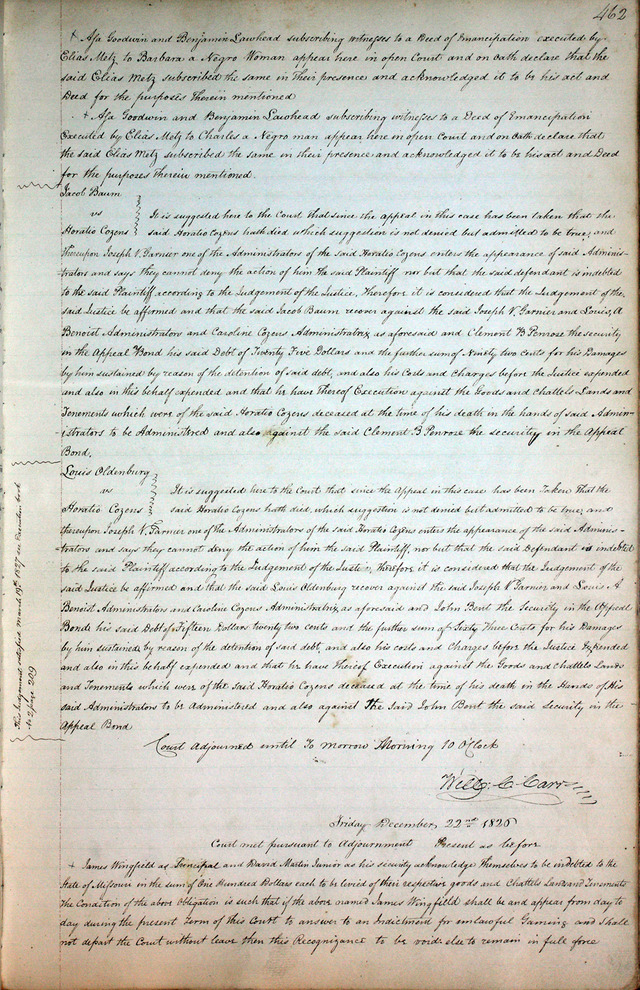 462
+ Asa Goodwin and Benjamin Lawhead subscribing witnesses to a Deed of Emancipation executed by
Elias Metz to Barbara a Negro Woman appear here in open Court and on oath declare that the
said Elias Metz subscribed the same in their presence and acknowledged it to be his act and
Deed for the purposes therein mentioned
+ Asa Goodwin and Benjamin Lawhead subscribing witnesses to a Deed of Emancipation
Executed by Elias Metz to Charles a Negro man appear here in open Court and on Oath declare that
the said Elias Metz subscribed the same in their presence and acknowledged it to be his act and Deed
for the purposes therein mentioned.
Jacob Baum
vs
Horatio Cozens
It is suggested here to the Court that since the appeal in this case has been taken that the
said Horatio Cozens hath died which suggestion is not denied but admitted to be true, and
thereupon Joseph V. Garnier one of the Administrators of the said Horatio Cozens enters the appearance of said Adminis-
trators and says they cannot deny the action of him the said Plaintiff nor but that the said defendant is indebted
to the said Plaintiff according to the Judgement of the Justice, Therefore it is considered that the Judgement of the
said Justice be affirmed and that the said Jacob Baum recover against the said Joseph V. Garnier and Louis A
Benoist Administrators and Caroline Cozens Administratrix as aforesaid and Clement B Penrose the security
in the Appeal Bond his said Debt of Twenty Five Dollars and the further sum of Ninety two cents for his Damages
by him sustained by reason of the detention of said debt, and also his Costs and Charges before the Justice expended
and also in this behalf expended and that he have thereof Execution against the Goods and chattels Lands and
Tenements which were of the said Horatio Cozens deceased at the time of his death in the hands of said Admin-
istrators to be Administered and also against the said Clement B. Penrose the security in the Appeal
Bond.
Louis Oldenburg
vs
Horatio Cozens
It is suggested here to the Court that since the Appeal in this case has been Taken That the
said Horatio Cozens hath died, which suggestion is not denied but admitted to be true, and
thereupon Joseph V. Garnier one of the Administrators of the said Horatio Cozens enters the appearance of the said Adminis-
trators and says they cannot deny the action of him the said Plaintiff, nor but that the said Defendant is indebted
to the said Plaintiff according to the Judgement of the Justice, therefore it is considered that the Judgement of the
said Justice be affirmed and that the said Louis Oldenburg recover against the said Joseph V Garnier and Louis A
Benoist Administrators and Caroline Cozens Administratrix as aforesaid and John Bent the Security in the Appeal
Bond his said Debt of Fifteen Dollars twenty two cents and the further sum of Sixty Three Cents for his Damages
by him sustained by reason of the detention of said debt, and also his costs and Charges before the Justice Expended
and also in this behalf expended and that he have thereof Execution against the Goods and chattels Lands
and Tenements which were of the said Horatio Cozens deceased at the time of his death in the Hands of His
said Administrators to be Administered and also against The said John Bent the said Security in the
Appeal Bond
This Judgment satisfied March 19th 1827 see Execution book
No 2 page 209
Court adjourned until To morrow Morning 10 O'Clock
Will: C. Carr
Friday December 22nd 1826
Court met pursuant to Adjournment Present as before
+ James Wingfield as Principal and David Martin Junior as his security acknowledge themselves to be indebted to the
State of Missouri in the sum of One Hundred Dollars each to be levied of their respective goods and Chattels Lands and Tenements
The Condition of the above Obligation is such that if the above named James Wingfield shall be and appear from day to
day during the present Term of this Court to answer to an Indictment for unlawful Gaming and Shall
not depart the Court without leave then this Recognizance to be void else to remain in full force